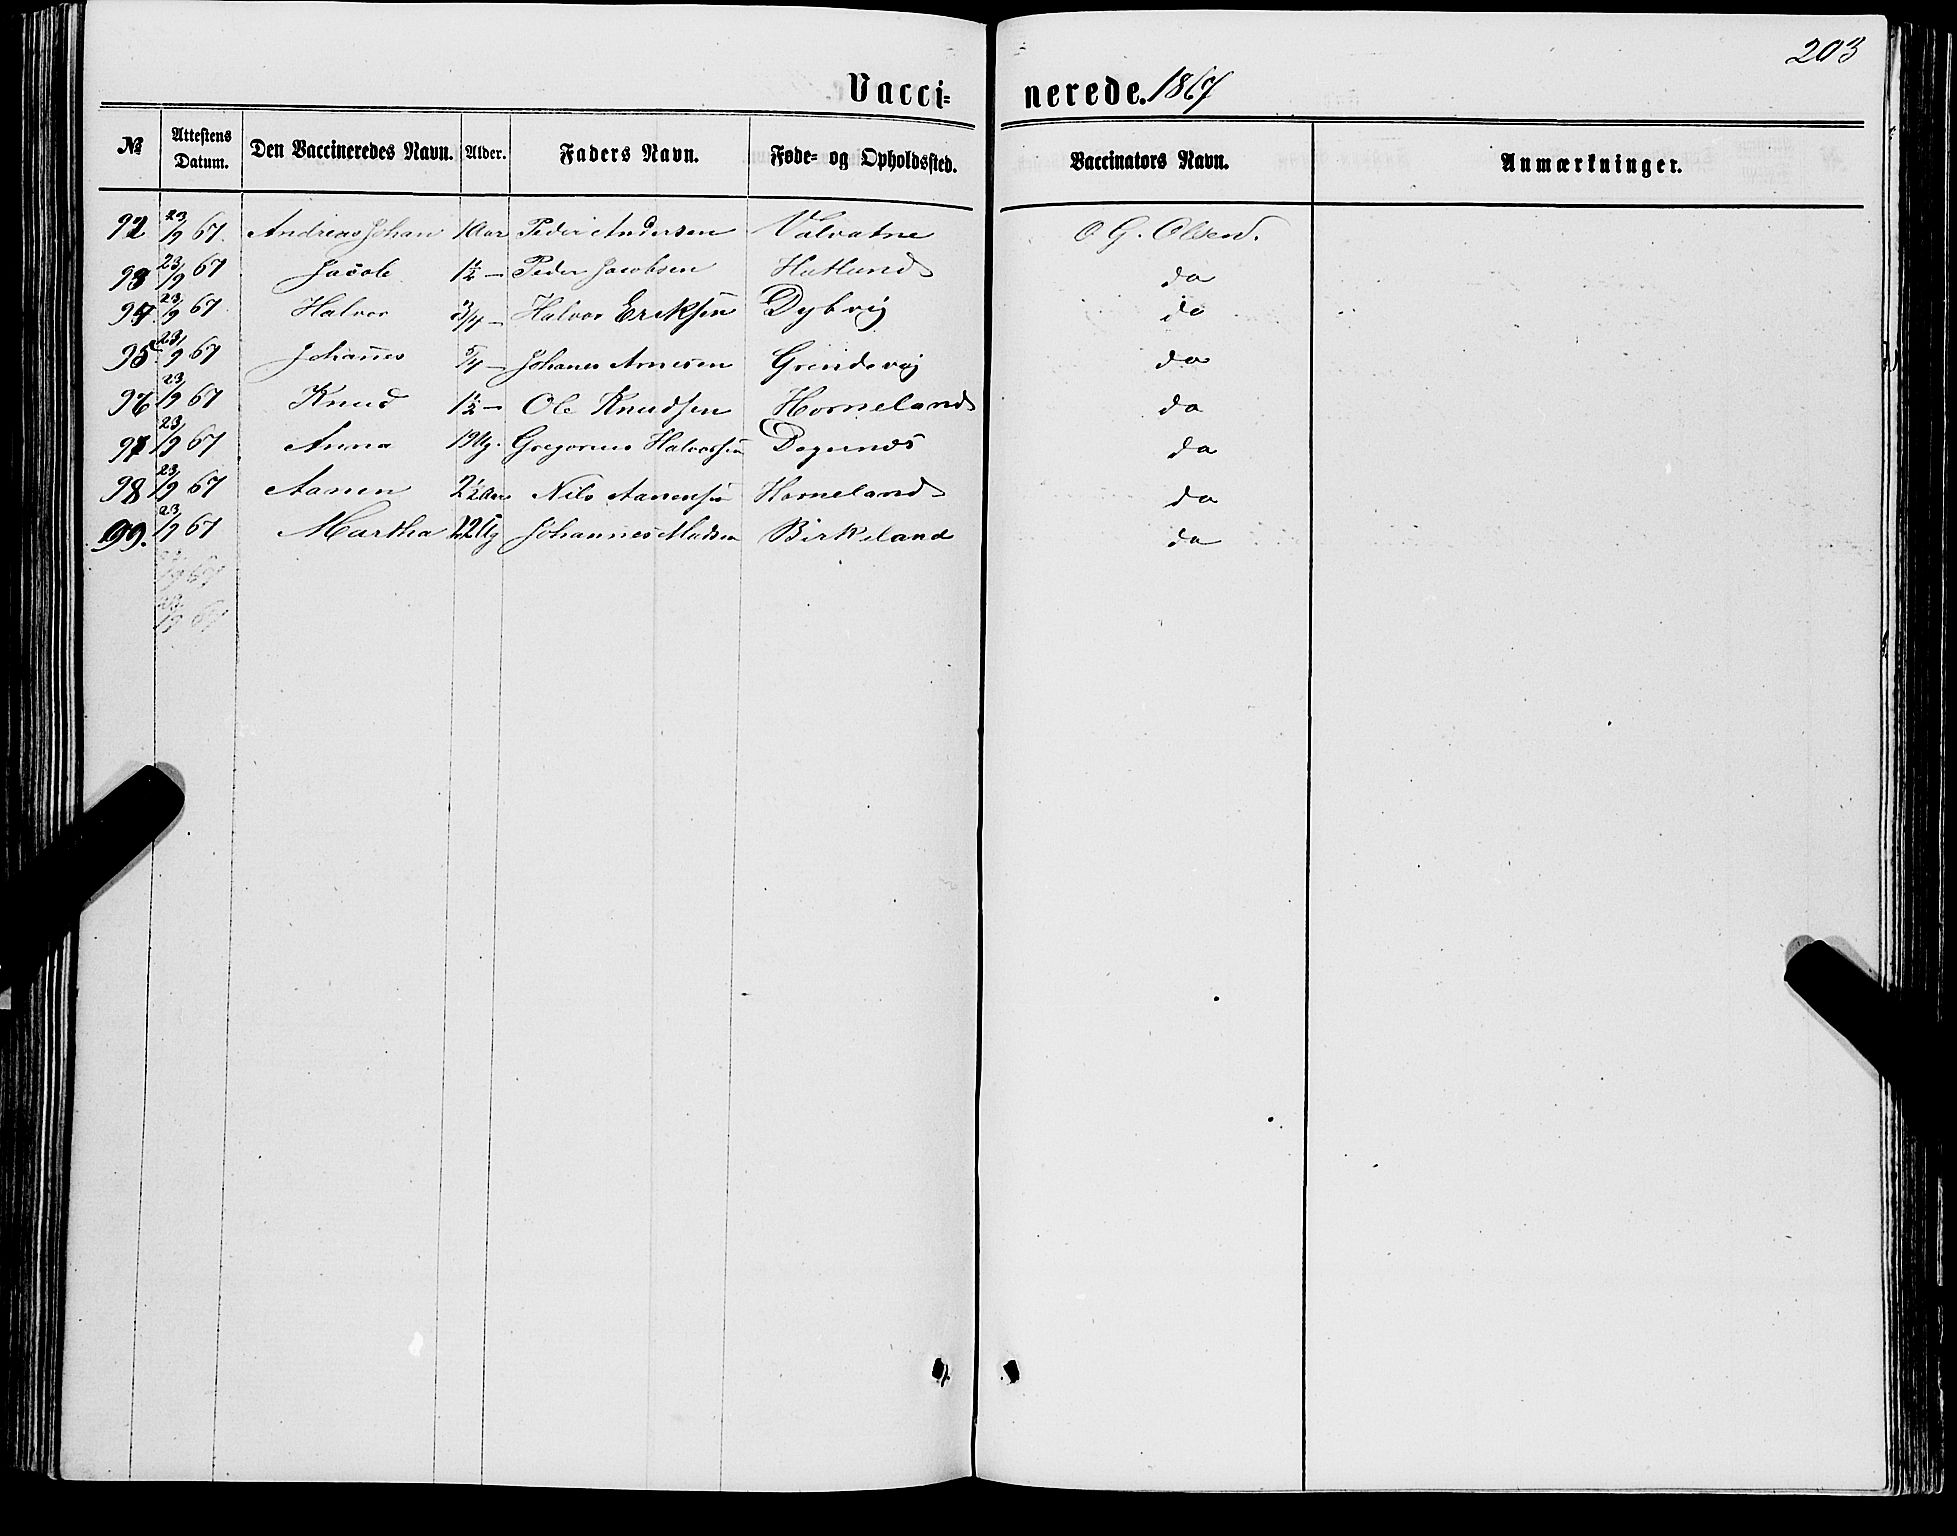 203
Vacci= nerede. 1867
№ Attestens Datum. Den Vaccineredes Navn. Alder. Faders Navn. Føde= og Opholdssted. Vaccinators Navn. Anmærkninger.
92 23/9 67. Andreas Johan 1 Aar Peder Andersen Valvatne O G. Olsen.
93 23/9 67 Jacob 1½ — Peder Jacobsen Hatland do
94 23/9 67 Halvor 3/4 — Halvor Eriksen Dybvig do
95 23/9 67 Johannes 5/4 — Johanes Arnesen Grindsvig do
96 23/9 67 Knud 1½ — Ole Knudsen Horneland do
97 23/9 67 Anna Gregorius Halvorsen do
98 23/9 67 Aanen 2½ Aar Nils Aanensen Horneland do
99. 23/9 67 Martha Johannes Madsen Birkeland do
67
23/9 67